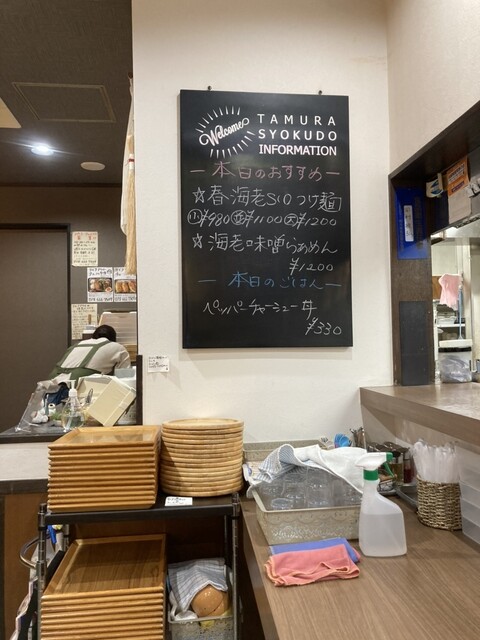 Welcome
TAMURA
SYOKUDO
INFORMATION
— 本日のおすすめ —
☆春海老SiOつけ麺
小¥980 並¥1100 大¥1200
☆海老味噌らぁめん
¥1200
— 本日のごはん —
ペッパーチャーシュー丼
¥330